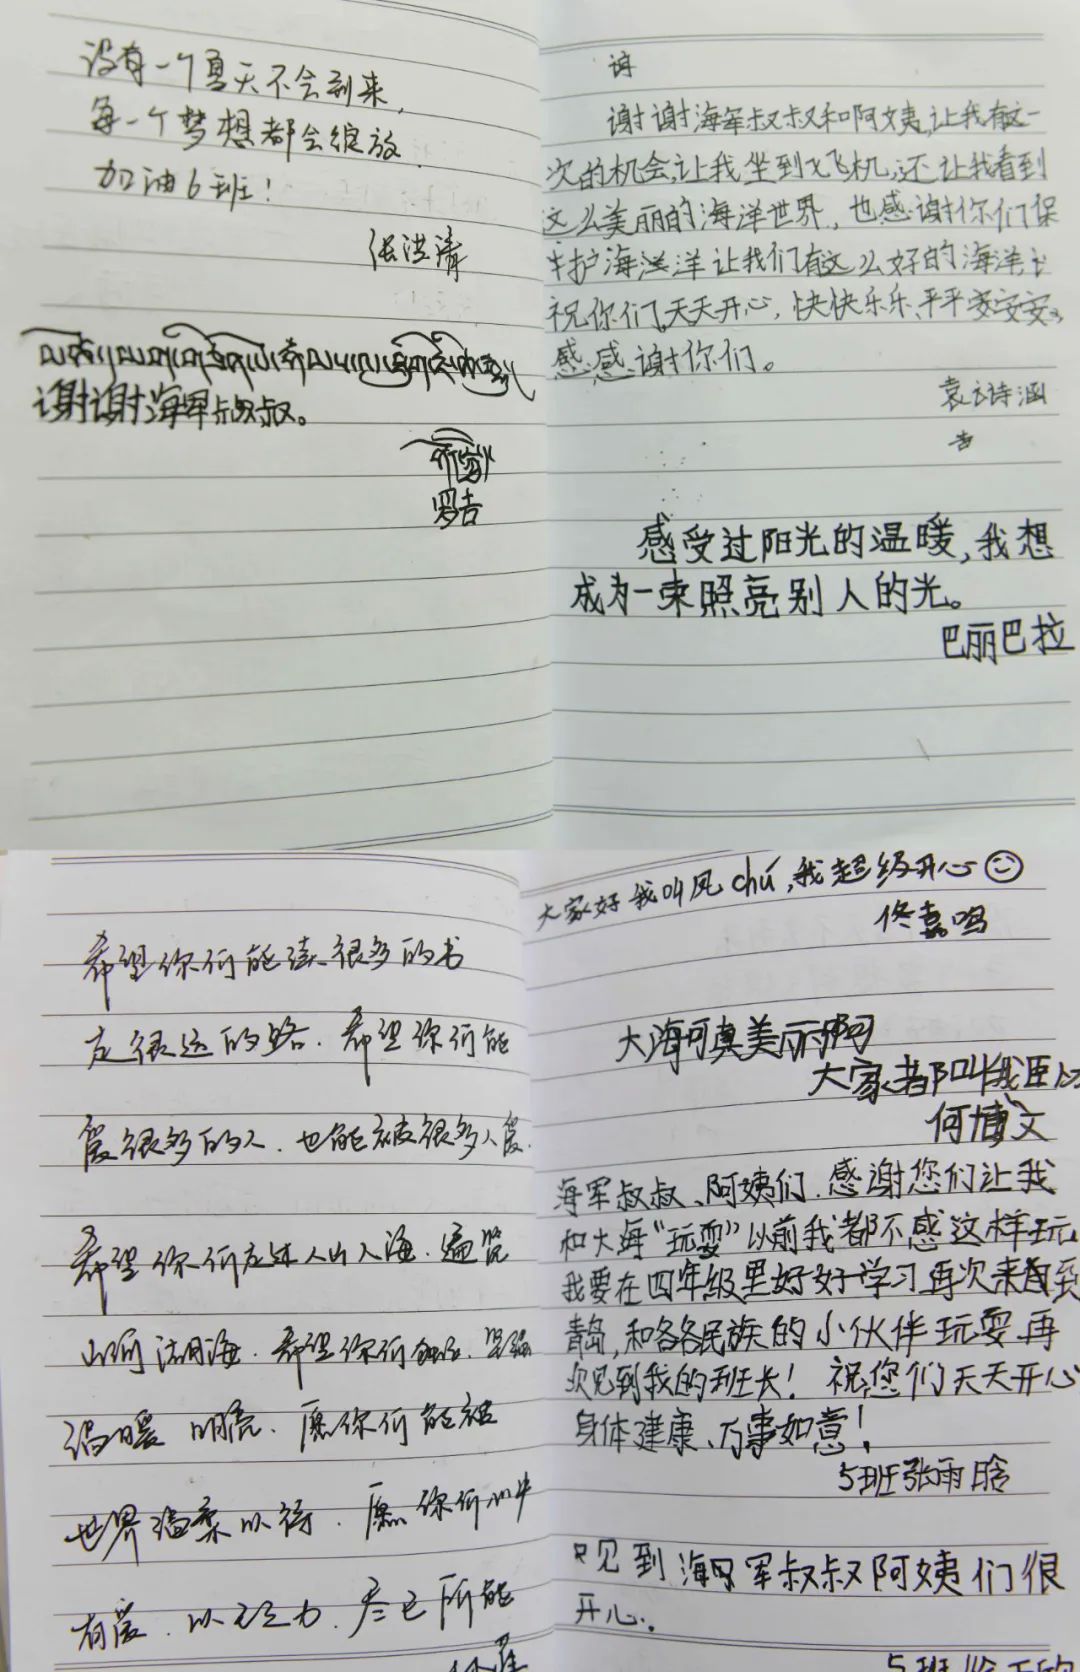 没有一个夏天不会到来，
每一个梦想都会绽放
加油6班！
张洪清
谢谢海军叔叔。
罗吉
谢
谢谢海军叔叔和阿姨,让我有这一
次的机会,让我坐到飞机,还让我看到
这么美丽的海洋世界，也感谢你们保
护海洋让我们有这么好的海洋
祝你们天天开心，快快乐乐、平平安安,
感感谢你们。
袁诗涵
感受过阳光的温暖,我想
成为一束照亮别人的光。
巴丽巴拉
希望你们能读很多的书
走很远的路．希望你们能
爱很多的人．也能被很多人爱．
希望你们走过人山人海．遍览
山河湖海．希望你们独立．坚强
温暖 明亮．愿你们能被
世界温柔以待．愿你们心中
有爱．以 力．尽己所能
大家好我叫凤chú,我超级开心☺
佟嘉鸣
大海可真美丽啊
大家都叫我
何博文
海军叔叔、阿姨们．感谢您们让我
和大海“玩耍”以前我都不感这样玩,
我要在四年级里好好学习再次来到
青岛,和各各民族的小伙伴玩耍．再
次见到我的班长！祝您们天天开心
身体建康、万事如意！
5班张雨晗
见到海军叔叔阿姨们很
开心．
5班